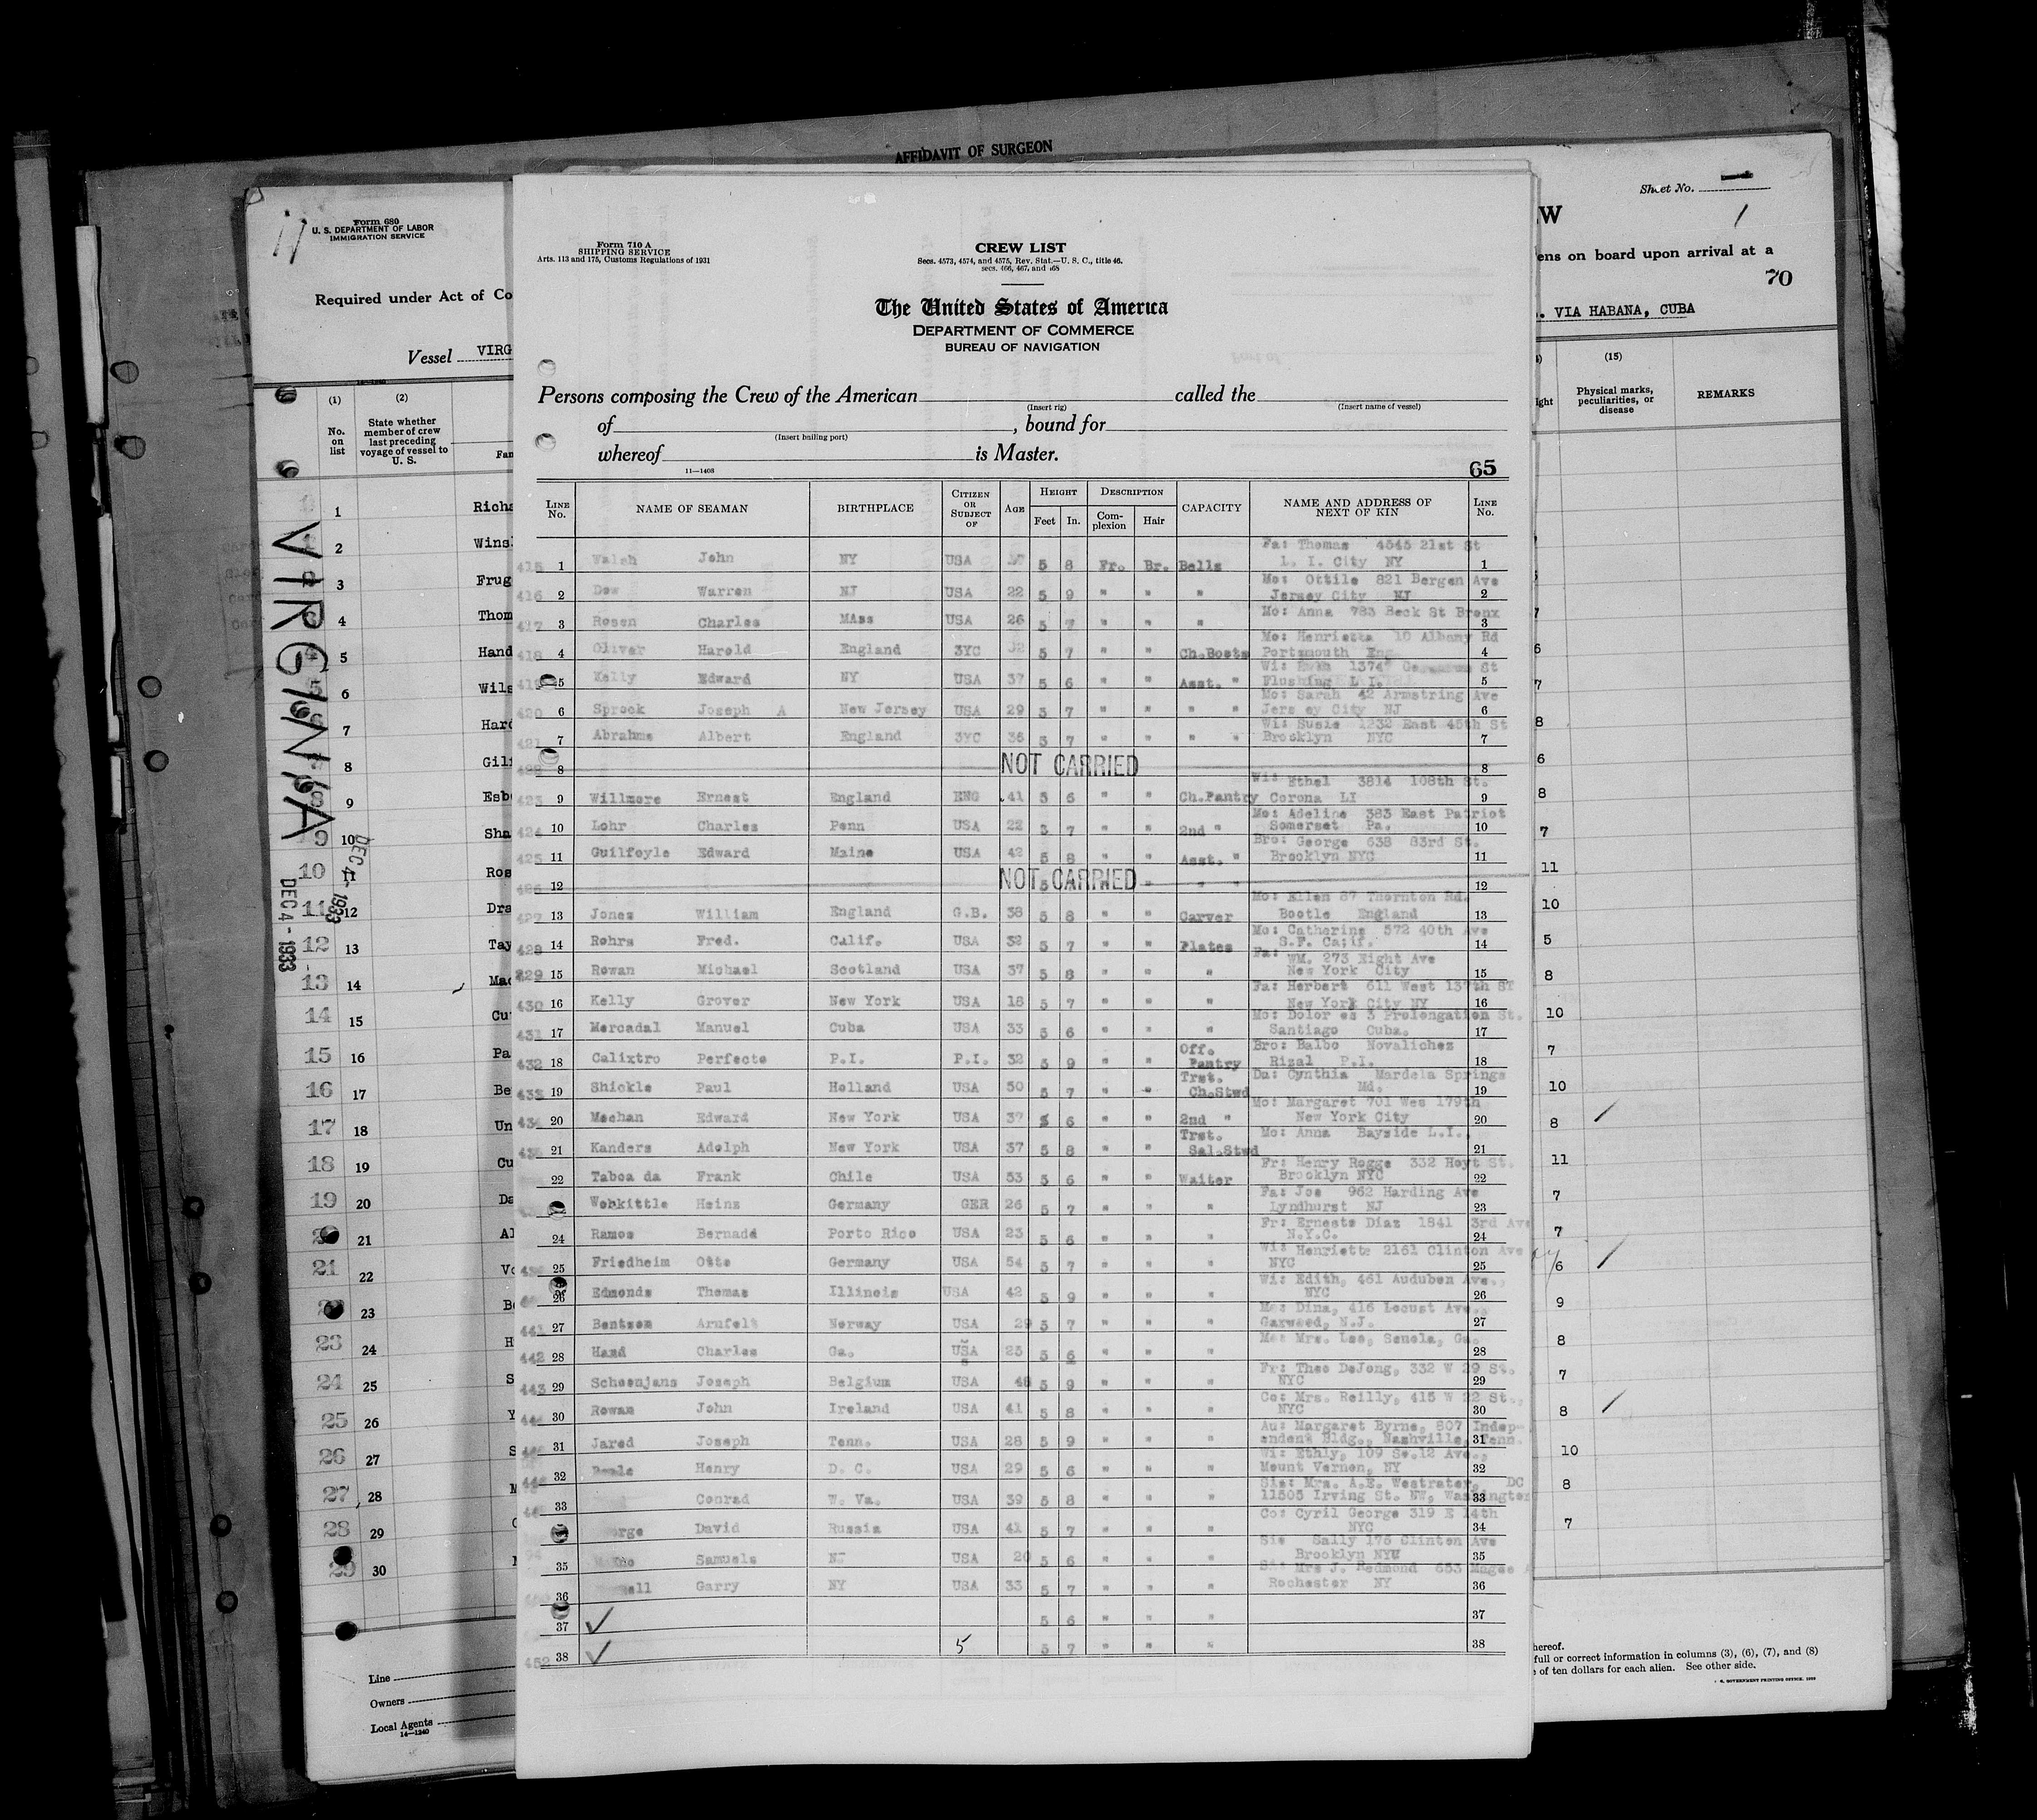 AFFIDAVIT OF SURGEON
Form 680
U. S. DEPARTMENT OF LABOR
IMMIGRATION SERVICE
Required under Act of Co
Vessel VIRG
(1) (2)
No. on list
State whether member of crew last preceding voyage of vessel to U. S.
Fam
1 Richa
2 Wins
3 Frug
4 Thom
5 Hand
6 Wils
7 Hard
8 Gil
9 Esb
10 Sha
11 Ros
12 Dra
13 Tay
14 Mac
15 Cu
16 Pa
17 Be
18 Un
19 Cu
20 Da
21 Al
22 Vo
23 B
24 H
25 S
26 Y
27 S
28 M
29
30
VIRGINIA
DEC 4 - 1933
DEC 4 - 1933
Line
Owners
Local Agents
14—1240
Form 710 A
SHIPPING SERVICE
Arts. 113 and 175, Customs Regulations of 1931
CREW LIST
Secs. 4573, 4574, and 4575, Rev. Stat.—U. S. C., title 46.
secs. 466, 467, and 468
The United States of America
DEPARTMENT OF COMMERCE
BUREAU OF NAVIGATION
Persons composing the Crew of the American called the
(Insert rig) (Insert name of vessel)
of , bound for
(Insert hailing port)
whereof is Master.
11—1408
65
LINE No. NAME OF SEAMAN BIRTHPLACE CITIZEN OR SUBJECT OF AGE HEIGHT Feet In. DESCRIPTION Complexion Hair CAPACITY NAME AND ADDRESS OF NEXT OF KIN LINE No.
Fa: Thomas 4545 21st St
415 1 Walsh John NY USA 5 8 Fr. Br. Bells L. I. City NY 1
Mo: Ottile 821 Bergen Ave
416 2 Dow Warren NJ USA 22 5 9 " " " Jersey City NJ 2
417 3 Rosen Charles MAss USA 26 5 7 " " " Mo: Anna 783 Beck St Bronx 3
Mo: Henrietta 10 Albany Rd
418 4 Oliver Harold England 3YC 32 5 7 " " Ch.Boots Portsmouth Eng 4
Wi: 1374 St
419 5 Kelly Edward NY USA 37 5 6 " " Asst. " Flushing L I. 5
Mo: Sarah 42 Armstring Ave
420 6 Sprock Joseph A New Jersey USA 29 5 7 " " " " Jers ey City NJ 6
Wi: Susie 1232 East 45th St
421 7 Abrahms Albert England 3YC 36 5 7 " " " " Brooklyn NYC 7
422 8 NOT CARRIED 8
Wi: Ethel 3814 108th St.
423 9 Willmore Ernest England ENG 41 5 6 " " Ch.Pantry Corona LI 9
Mo: Adeline 383 East Patriot
424 10 Lohr Charles Penn USA 22 5 7 " " 2nd " Somerset Pa. 10
Bro: George 638 83rd St.
425 11 Guilfoyle Edward Maine USA 42 5 8 " " Asst. " Brooklyn NYC 11
426 12 NOT CARRIED 5 " " " " 12
Mo: Ellen 87 Thornton Rd.
427 13 Jones William England G.B. 38 5 8 " " Carver Bootle England 13
Mo: Catherine 572 40th Ave
428 14 Rohrs Fred. Calif. USA 32 5 7 " " Plates S.F. Calif. 14
Fa: WM. 273 Eight Ave
429 15 Rowan Michael Scotland USA 37 5 8 " " " New York City 15
Fa: Herbert 611 West 137th ST
430 16 Kelly Grover New York USA 18 5 7 " " " New York City NY 16
Mo: Dolor es 3 Prolongation St.
431 17 Mercadal Manuel Cuba USA 33 5 6 " " " Santiago Cuba. 17
Off. Bro: Balbo Novalichez
432 18 Calixtro Perfecto P.I. P.I. 32 5 9 " " Pantry Rizal P.I. 18
Trst. Da: Cynthia Mardela Springs
433 19 Shickle Paul Holland USA 50 5 7 " " Ch.Stwd Md. 19
Mo: Margaret 701 Wes 179th
434 20 Meehan Edward New York USA 37 5 6 " " 2nd " New York City 20
Trst. Mo: Anna Bayside L.I.
435 21 Kanders Adolph New York USA 37 5 8 " " Sal.Stwd 21
Fr: Henry Rogge 332 Hoyt St.
22 Taboa da Frank Chile USA 53 5 6 " " Waiter Brooklyn NYC 22
Fa: Joe 962 Harding Ave
Wobkittle Heinz Germany GER 26 5 7 " " " Lyndhurst NJ 23
Fr: Ernesto Diaz 1841 3rd Ave
24 Ramos Bernadd Porto Rico USA 23 5 6 " " " N.Y.C. 24
Wi: Henriette 2161 Clinton Ave
25 Friedheim Otto Germany USA 54 5 7 " " " NYC 25
Wi: Edith, 461 Audubon Ave.,
26 Edmonds Thomas Illinois USA 42 5 9 " " " NYC 26
Mo: Dina, 416 Locust Ave.,
441 27 Bentzen Arnfelt Norway USA 29 5 7 " " " Garwood, N.J. 27
Mo: Mrs. Lee, Senola, Ga.
442 28 Hand Charles Ga. USA 23 5 6 " " " 28
Fr: Theo DeJong, 332 W 29 St.
443 29 Schoonjans Joseph Belgium USA 48 5 9 " " " NYC 29
Co: Mrs. Reilly, 415 W 22 St.,
30 Rowan John Ireland USA 41 5 8 " " " NYC 30
Au: Margaret Byrne, 807 Indep-
31 Jared Joseph Tenn. USA 28 5 9 " " " endent Bldg., Nashville, Tenn. 31
Wi: Ethly, 109 So.12 Ave.,
32 Henry D. C. USA 29 5 6 " " " Mount Vernon, NY 32
Sis: Mrs. A.E. Westrater, DC
33 Conrad W. Va. USA 39 5 8 " " " 11505 Irving St. NW, Washington 33
Co: Cyril George 319 E 14th
orge David Russia USA 41 5 7 " " " NYC 34
Sis Sally 175 Clinton Ave
35 Samuels USA 20 5 6 " " " Brooklyn NYC 35
Mrs J. Redmond 653 Magee
36 ell Garry NY USA 33 5 7 " " " Rochester NY 36
37 ✓ 5 6 " " " 37
452 38 ✓ 5 5 7 " " " 38
Sheet No.
W
1
ens on board upon arrival at a
70
. VIA HABANA, CUBA
(15)
ght
Physical marks, peculiarities, or disease
REMARKS
6
7
8
6
8
7
11
10
5
8
10
7
10
8
11
7
7
6
9
8
7
8
10
8
7
hereof.
full or correct information in columns (3), (6), (7), and (8)
of ten dollars for each alien. See other side.
GOVERNMENT PRINTING OFFICE